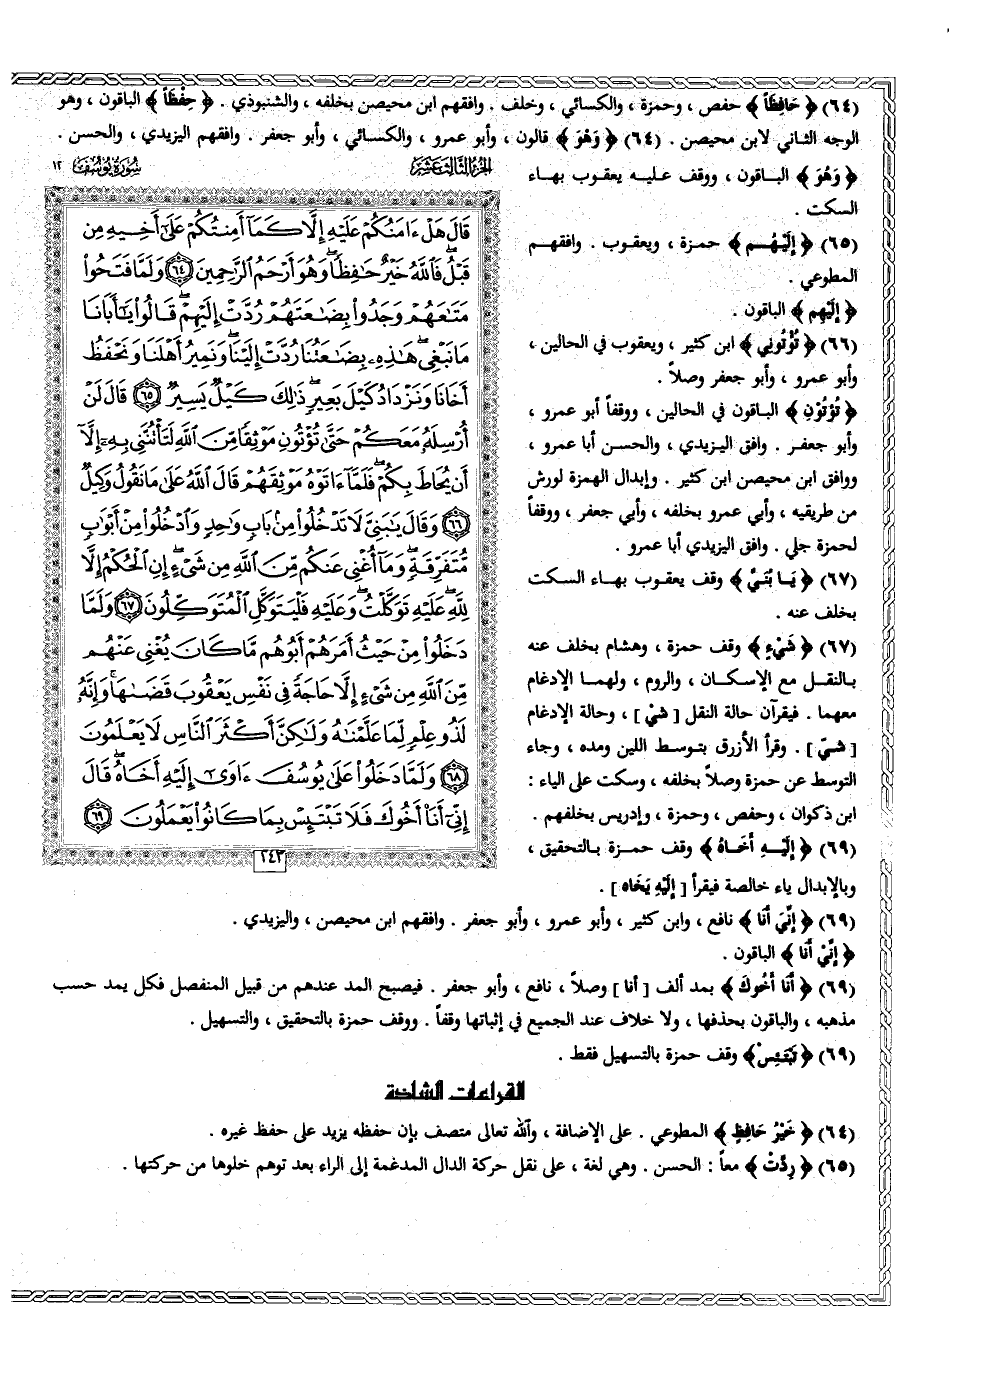 (٦٤) ﴿ حَافِظَاً ﴾ حفص ، وحمزة ، والكسائي ، وخلف . وافقهم ابن محيصن بخلفه ، والشنبوذي . ﴿ حِفْظَاً ﴾ الباقون ، وهو
الوجه الثاني لابن محيصن . (٦٤) ﴿ وَهْوَ ﴾ قالون ، وأبو عمرو ، والكسائي ، وأبو جعفر . وافقهم اليزيدي ، والحسن .
﴿ وَهُوَ ﴾ الباقون ، ووقف عليه يعقوب بهاء
السكت .
(٦٥) ﴿ إِلَيْهُم ﴾ حمزة ، ويعقوب . وافقهم
المطوعي .
﴿ إِلَيْهِم ﴾ الباقون .
(٦٦) ﴿ تُؤْتُونِي ﴾ ابن كثير ، ويعقوب في الحالين ،
وأبو عمرو ، وأبو جعفر وصلاً .
﴿ تُؤْتُوْنِ ﴾ الباقون في الحالين ، ووقفاً أبو عمرو ،
وأبو جعفر . وافق اليزيدي ، والحسن أبا عمرو ،
ووافق ابن محيصن ابن كثير . وإبدال الهمزة لورش
من طريقيه ، وأبي عمرو بخلفه ، وأبي جعفر ، ووقفاً
لحمزة جلي . وافق اليزيدي أبا عمرو .
(٦٧) ﴿ يَا بُنَيَّ ﴾ وقف يعقوب بهاء السكت
بخلف عنه .
(٦٧) ﴿ شَيْءٍ ﴾ وقف حمزة ، وهشام بخلف عنه
بالنقل مع الإسكان ، والروم ، ولهما الإدغام
معهما . فيقرآن حالة النقل [ شَيْ ] ، وحالة الإدغام
[ شَيّ ] . وقرأ الأزرق بتوسط اللين ومده ، وجاء
التوسط عن حمزة وصلاً بخلفه ، وسكت على الياء :
ابن ذكوان ، وحفص ، وحمزة ، وإدريس بخلفهم .
(٦٩) ﴿ إِلَيْهِ أَخَاهُ ﴾ وقف حمزة بالتحقيق ،
وبالإبدال ياء خالصة فيقرأ [ إِلَيْهِ يَخَاه ] .
سُورَةُ يُوسُفَ ١٢
الجُزْءُ الثَّالِثَ عَشَرَ
قَالَ هَلْ ءَامَنُكُمْ عَلَيْهِ إِلَّا كَمَآ أَمِنتُكُمْ عَلَىٰٓ أَخِيهِ مِن
قَبْلُ ۖ فَٱللَّهُ خَيْرٌ حَٰفِظًا ۖ وَهُوَ أَرْحَمُ ٱلرَّٰحِمِينَ ٦٤ وَلَمَّا فَتَحُوا۟
مَتَٰعَهُمْ وَجَدُوا۟ بِضَٰعَتَهُمْ رُدَّتْ إِلَيْهِمْ ۖ قَالُوا۟ يَٰٓأَبَانَا
مَا نَبْغِى ۖ هَٰذِهِۦ بِضَٰعَتُنَا رُدَّتْ إِلَيْنَا ۖ وَنَمِيرُ أَهْلَنَا وَنَحْفَظُ
أَخَانَا وَنَزْدَادُ كَيْلَ بَعِيرٍ ۖ ذَٰلِكَ كَيْلٌ يَسِيرٌ ٦٥ قَالَ لَنْ
أُرْسِلَهُۥ مَعَكُمْ حَتَّىٰ تُؤْتُونِ مَوْثِقًا مِّنَ ٱللَّهِ لَتَأْتُنَّنِى بِهِۦٓ إِلَّآ
أَن يُحَاطَ بِكُمْ ۖ فَلَمَّآ ءَاتَوْهُ مَوْثِقَهُمْ قَالَ ٱللَّهُ عَلَىٰ مَا نَقُولُ وَكِيلٌ
٦٦ وَقَالَ يَٰبَنِىَّ لَا تَدْخُلُوا۟ مِنۢ بَابٍ وَٰحِدٍ وَٱدْخُلُوا۟ مِنْ أَبْوَٰبٍ
مُّتَفَرِّقَةٍ ۖ وَمَآ أُغْنِى عَنكُم مِّنَ ٱللَّهِ مِن شَىْءٍ ۖ إِنِ ٱلْحُكْمُ إِلَّا
لِلَّهِ ۖ عَلَيْهِ تَوَكَّلْتُ ۖ وَعَلَيْهِ فَلْيَتَوَكَّلِ ٱلْمُتَوَكِّلُونَ ٦٧ وَلَمَّا
دَخَلُوا۟ مِنْ حَيْثُ أَمَرَهُمْ أَبُوهُم مَّا كَانَ يُغْنِى عَنْهُم
مِّنَ ٱللَّهِ مِن شَىْءٍ إِلَّا حَاجَةً فِى نَفْسِ يَعْقُوبَ قَضَىٰهَا ۚ وَإِنَّهُۥ
لَذُو عِلْمٍ لِّمَا عَلَّمْنَٰهُ وَلَٰكِنَّ أَكْثَرَ ٱلنَّاسِ لَا يَعْلَمُونَ
٦٨ وَلَمَّا دَخَلُوا۟ عَلَىٰ يُوسُفَ ءَاوَىٰٓ إِلَيْهِ أَخَاهُ ۖ قَالَ
إِنِّىٓ أَنَا۠ أَخُوكَ فَلَا تَبْتَئِسْ بِمَا كَانُوا۟ يَعْمَلُونَ ٦٩
٢٤٣
(٦٩) ﴿ إِنِّيَ أَنَا ﴾ نافع ، وابن كثير ، وأبو عمرو ، وأبو جعفر . وافقهم ابن محيصن ، واليزيدي .
﴿ إِنِّيْ أَنَا ﴾ الباقون .
(٦٩) ﴿ أَنَا أَخُوكَ ﴾ بمد ألف [ أنا ] وصلاً ، نافع ، وأبو جعفر . فيصبح المد عندهم من قبيل المنفصل فكل يمد حسب
مذهبه ، والباقون بحذفها ، ولا خلاف عند الجميع في إثباتها وقفاً . ووقف حمزة بالتحقيق ، والتسهيل .
(٦٩) ﴿ تَبْتَئِسْ﴾ وقف حمزة بالتسهيل فقط .
القراءات الشاذة
(٦٤) ﴿ خَيْرُ حَافِظٍ ﴾ المطوعي . على الإضافة ، والله تعالى متصف بإن حفظه يزيد على حفظ غيره .
(٦٥) ﴿ رِدَّتْ ﴾ معاً : الحسن . وهي لغة ، على نقل حركة الدال المدغمة إلى الراء بعد توهم خلوها من حركتها .